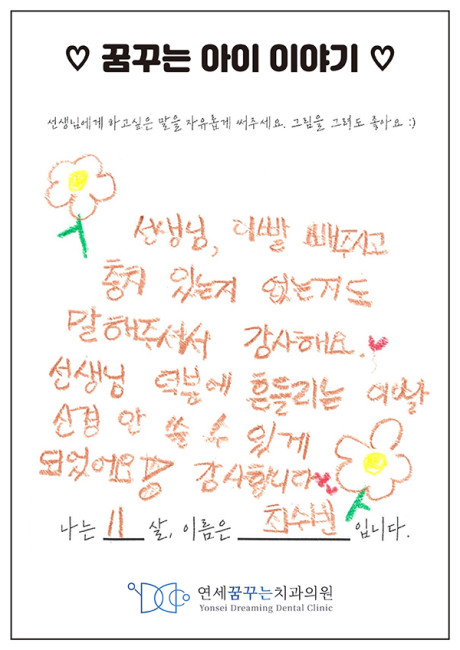 ♡ 꿈꾸는 아이 이야기 ♡
선생님에게 하고싶은 말을 자유롭게 써주세요. 그림을 그려도 좋아요 :)
선생님, 이빨 빼주시고
충치 있는지 없는지도
말해주셔서 감사해요.
선생님 덕분에 흔들리는 이빨
신경 안 쓸 수 있게
되었어요! 감사합니다
나는 11 살, 이름은 최수빈 입니다.
연세꿈꾸는치과의원
Yonsei Dreaming Dental Clinic